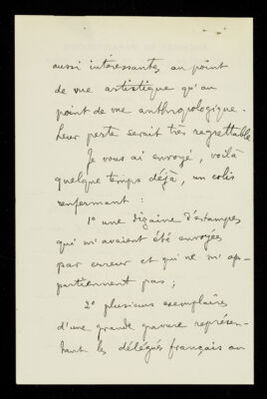 aussi intéressantes au point
de vue artistique qu'au
point de vue anthropologique.
Leur perte serait très regrettable.
Je vous ai envoyé, voilà
quelque temps déjà, un colis
renfermant :
1º une dizaine d'estampes
qui m'avaient été envoyées
par erreur et qui ne m'ap-
partiennent pas ;
2º plusieurs exemplaires
d'une grande gravure représen-
tant les délégués français au